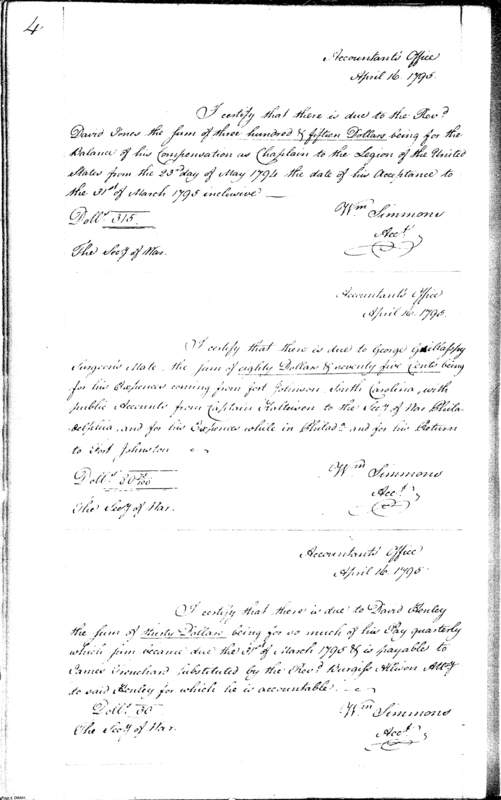 4
Accountant's Office
April 16. 1795.
I certify that there is due to the Revd.
David Jones the sum of three hundred & fifteen Dollars being for the
Balance of his Compensation as Chaplain to the Legion of the United
States from the 23d day of May 1794 the date of his Acceptance to
the 31st of March 1795 inclusive —
Dolls. 315.
Wm Simmons
Acct.
The Secy of War.
Accountant's Office
April 16. 1795.
I certify that there is due to George Gillaspy
Surgeon's Mate, the sum of eighty Dollars & seventy five Cents being
for his Expences coming from fort Johnson, South Carolina, with
public Accounts from Captain to the Secy. of War Phila-
delphia, and for his Expences while in Philada. and for his Return
to Fort Johnston
Dolls.
Wm Simmons
Acct.
The Secy of War.
Accountant's Office
April 16. 1795.
I certify that there is due to David Henley
the sum of thirty Dollars being for so much of his Pay quarterly
which sum became due the 31st of March 1795 & is payable to
James substituted by the Revd. Burgiss Allison Atty
to said Henley for which he is accountable.
Dolls. 30
Wm Simmons
Acct.
The Secy of War.